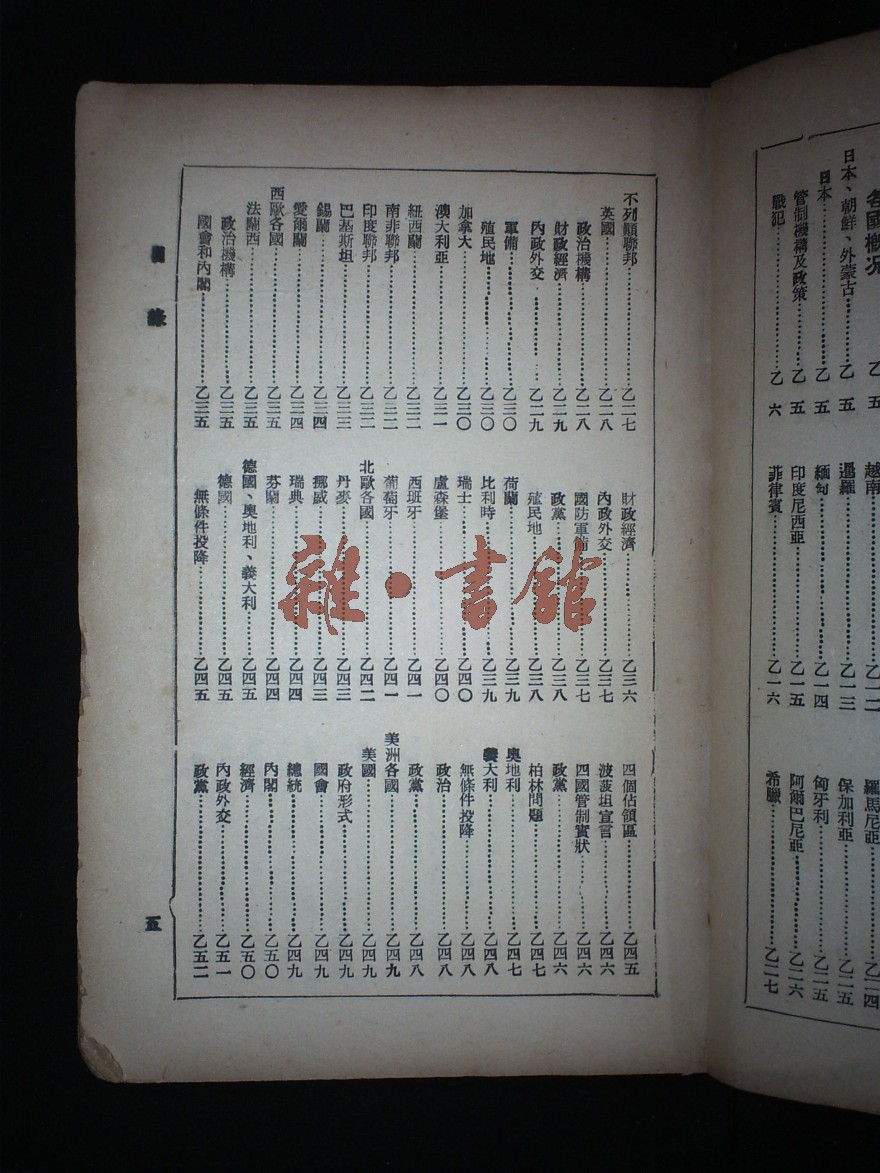 各國槪況……乙 五
日本、朝鮮、外蒙古……乙 五
日本……乙 五
管制機構及政策……乙 五
戰犯……乙 六
越南……乙一二
暹羅……乙一三
緬甸……乙一四
印度尼西亞……乙一五
菲律賓……乙一六
羅馬尼亞……乙二四
保加利亞……乙二五
匈牙利……乙二五
阿爾巴尼亞……乙二六
希臘……乙二七
不列顛聯邦……乙二七
英國……乙二八
政治機構……乙二八
財政經濟……乙二九
內政外交……乙二九
軍備……乙三〇
殖民地……乙三〇
加拿大……乙三〇
澳大利亞……乙三一
紐西蘭……乙三二
南非聯邦……乙三二
印度聯邦……乙三二
巴基斯坦……乙三三
錫蘭……乙三四
愛爾蘭……乙三四
西歐各國……乙三五
法蘭西……乙三五
政治機構……乙三五
國會和內閣……乙三五
財政經濟……乙三六
內政外交……乙三七
國防軍備……乙三七
政黨……乙三八
殖民地……乙三八
荷蘭……乙三九
比利時……乙三九
瑞士……乙四〇
盧森堡……乙四〇
西班牙……乙四一
葡萄牙……乙四一
北歐各國……乙四二
丹麥……乙四三
挪威……乙四三
瑞典……乙四四
芬蘭……乙四四
德國、奧地利、義大利……乙四五
德國……乙四五
無條件投降……乙四五
四個佔領區……乙四五
波茨坦宣言……乙四六
四國管制實狀……乙四六
政黨……乙四六
柏林問題……乙四七
奧地利……乙四七
義大利……乙四八
無條件投降……乙四八
政治……乙四八
政黨……乙四八
美洲各國……乙四九
美國……乙四九
政府形式……乙四九
國會……乙四九
總統……乙四九
內閣……乙五〇
經濟……乙五〇
內政外交……乙五一
政黨……乙五二
目 錄
五
雜·書館